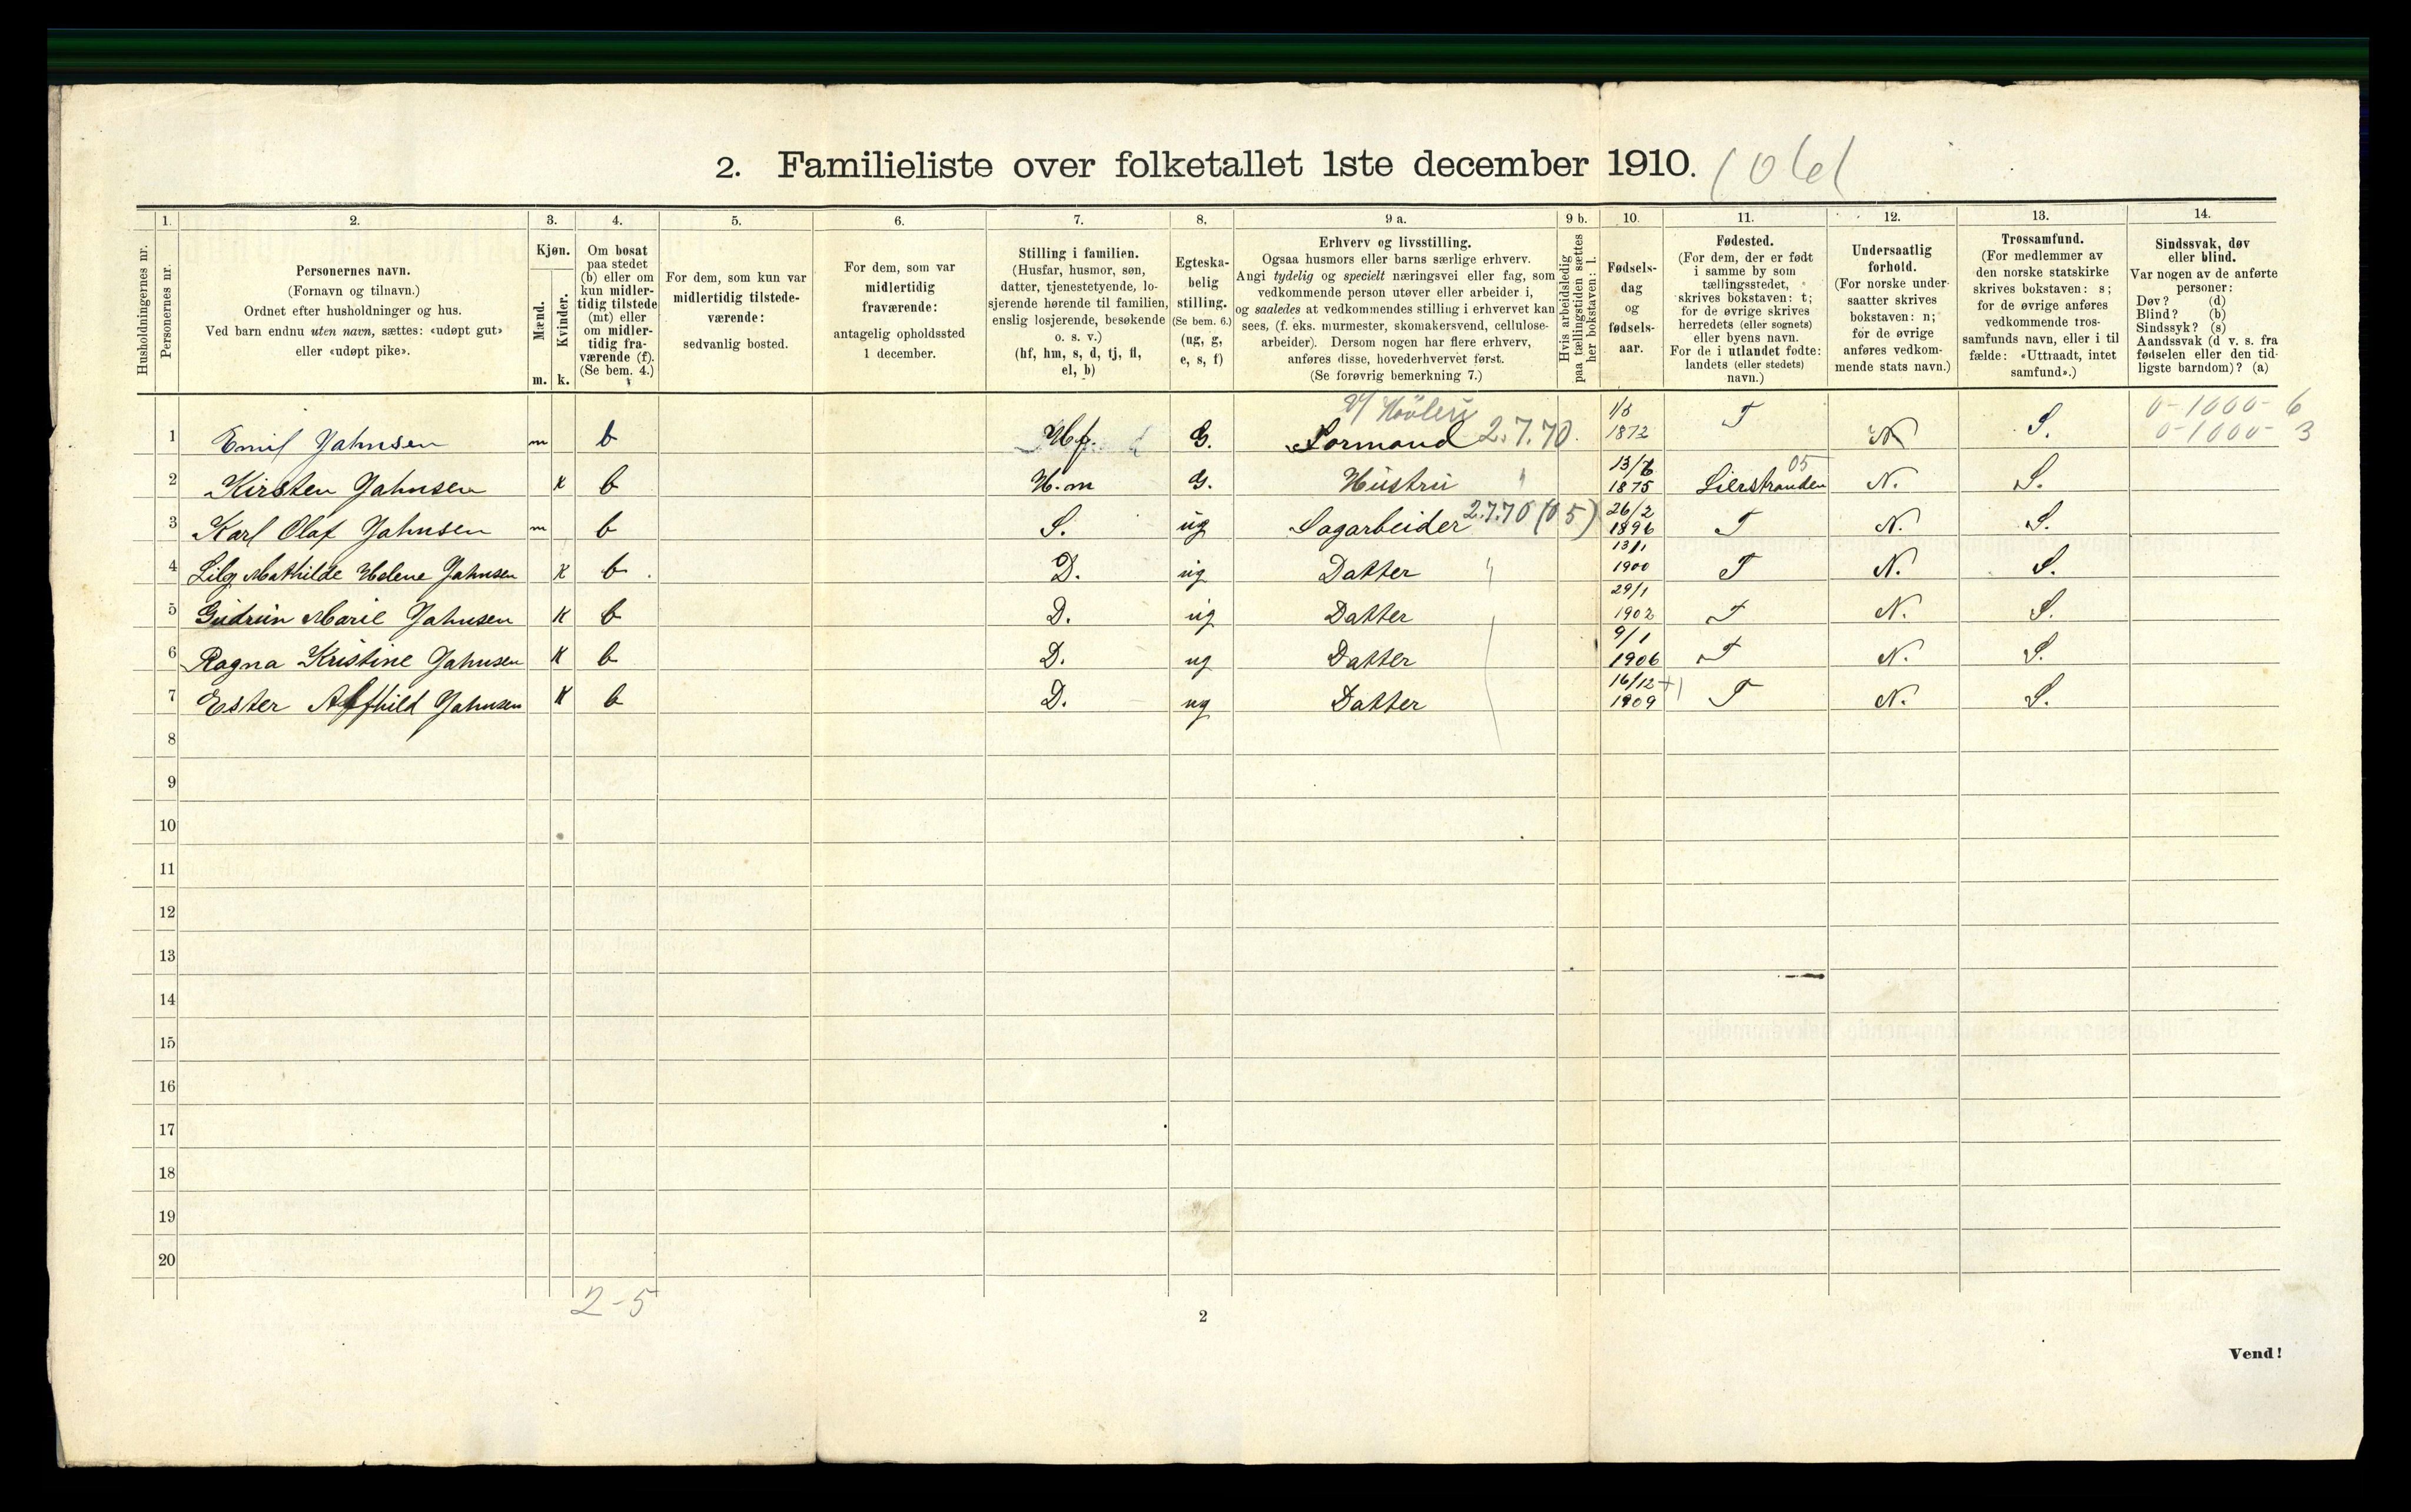 2. Familieliste over folketallet 1ste december 1910.
1. 2. 3. 4. 5. 6. 7. 8. 9 a. 9 b. 10. 11. 12. 13. 14.
Husholdningernes nr.
Personernes nr.
Personernes navn.
(Fornavn og tilnavn.)
Ordnet efter husholdninger og hus.
Ved barn endnu uten navn, sættes: «udøpt gut»
eller «udøpt pike».
Kjøn.
Mænd.
Kvinder.
m. k.
Om bosat
paa stedet
(b) eller om
kun midler-
tidig tilstede
(mt) eller
om midler-
tidig fra-
værende (f).
(Se bem. 4.)
For dem, som kun var
midlertidig tilstede-
værende:
sedvanlig bosted.
For dem, som var
midlertidig
fraværende:
antagelig opholdssted
1 december.
Stilling i familien.
(Husfar, husmor, søn,
datter, tjenestetyende, lo-
sjerende hørende til familien,
enslig losjerende, besøkende
o. s. v.)
(hf, hm, s, d, tj, fl,
el, b)
Egteska-
belig
stilling.
(Se bem. 6.)
(ug, g,
e, s, f)
Erhverv og livsstilling.
Ogsaa husmors eller barns særlige erhverv.
Angi tydelig og specielt næringsvei eller fag, som
vedkommende person utøver eller arbeider i,
og saaledes at vedkommendes stilling i erhvervet kan
sees, (f. eks. murmester, skomakersvend, cellulose-
arbeider). Dersom nogen har flere erhverv,
anføres disse, hovederhvervet først.
(Se forøvrig bemerkning 7.)
Hvis arbeidsledig
paa tællingstiden sættes
her bokstaven: l.
Fødsels-
dag
og
fødsels-
aar.
Fødested.
(For dem, der er født
i samme by som
tællingsstedet,
skrives bokstaven: t;
for de øvrige skrives
herredets (eller sognets)
eller byens navn.
For de i utlandet fødte:
landets (eller stedets)
navn.)
Undersaatlig
forhold.
(For norske under-
saatter skrives
bokstaven: n;
for de øvrige
anføres vedkom-
mende stats navn.)
Trossamfund.
(For medlemmer av
den norske statskirke
skrives bokstaven: s;
for de øvrige anføres
vedkommende tros-
samfunds navn, eller i til
fælde: «Uttraadt, intet
samfund».)
Sindssvak, døv
eller blind.
Var nogen av de anførte
personer:
Døv? (d)
Blind? (b)
Sindssyk? (s)
Aandssvak (d v. s. fra
fødselen eller den tid-
ligste barndom)? (a)
0-1000-6
0-1000-3
1 Emil Jahnsen m b Hf. G. Formand 2.7.70. 1872 T N S.
2 Kirsten Jahnsen K b H.m G. Hustru 13/6 1875 Lierstranden 05 N. S.
3 Karl Olaf Jahnsen m b S. ug Sagarbeider 2.7.70 (05) 26/2 1896 T N. S.
4 Lily Mathilde Helene Jahnsen K b. D. ug Datter 13/1 1900 T N. S.
5 Gudrun Marie Jahnsen K b D. ug Datter 29/1 1902 T N. S.
6 Ragna Kristine Jahnsen K b D. ug Datter 9/1 1906 T N. S.
7 Ester Alfhild Jahnsen K b D. ug Datter 16/12 1909 T N. S.
8
9
10
11
12
13
14
15
16
17
18
19
20
2-5
2
Vend!